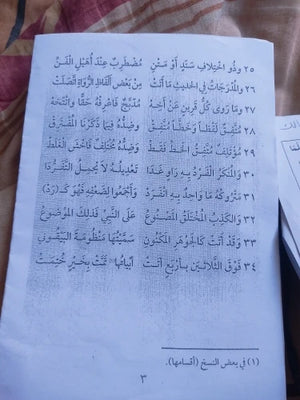 ٢٥ وَذُو اخْتِلَافِ سَنَدٍ أَوْ مَتْنِ مُضْطَرِبٌ عِنْدَ أُهَيْلِ الْفَنِّ
٢٦ وَالْمُدْرَجَاتُ فِي الْحَدِيثِ مَا أَتَتْ مِنْ بَعْضِ أَلْفَاظِ الرُّوَاةِ اتَّصَلَتْ
٢٧ وَمَا رَوَى كُلُّ قَرِينٍ عَنْ أَخِهْ مُدَبَّجٌ فَاعْرِفْهُ حَقًّا وَانْتَخِهْ
٢٨ مُتَّفِقٌ لَفْظًا وَخَطًّا مُتَّفِقْ وَضِدُّهُ فِيمَا ذَكَرْنَا الْمُفْتَرِقْ
٢٩ مُؤْتَلِفٌ مُتَّفِقُ الْخَطِّ فَقَطْ وَضِدُّهُ مُخْتَلِفٌ فَاخْشَ الْغَلَطْ
٣٠ وَالْمُنْكَرُ الْفَرْدُ بِهِ رَاوٍ غَدَا تَعْدِيلُهُ لَا يَحْمِلُ التَّفَرُّدَا
٣١ مَتْرُوكُهُ مَا وَاحِدٌ بِهِ انْفَرَدْ وَأَجْمَعُوا لِضَعْفِهِ فَهْوَ كَـ(رَدّ)
٣٢ وَالْكَذِبُ الْمُخْتَلَقُ الْمَصْنُوعُ عَلَى النَّبِيِّ فَذَلِكَ الْمَوْضُوعُ
٣٣ وَقَدْ أَتَتْ كَالْجَوْهَرِ الْمَكْنُونِ سَمَّيْتُهَا مَنْظُومَةَ الْبَيْقُونِي
٣٤ فَوْقَ الثَّلَاثِينَ بِأَرْبَعٍ أَتَتْ أَبْيَاتُهَا(١) تَمَّتْ بِخَيْرٍ خُتِمَتْ
(١) في بعض النسخ (أقسامها).
٣